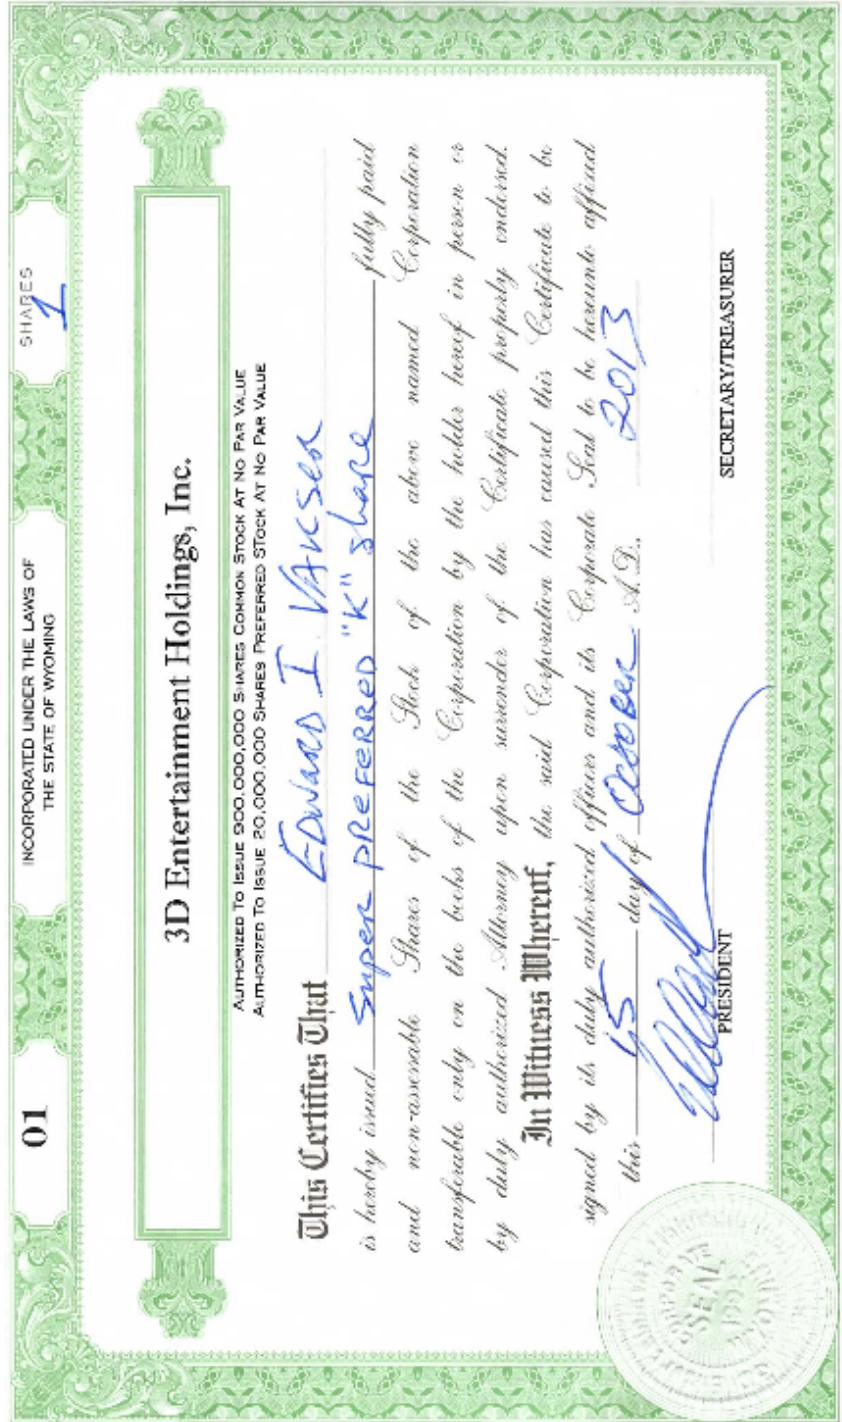 01
INCORPORATED UNDER THE LAWS OF
THE STATE OF WYOMING
SHARES
1
3D Entertainment Holdings, Inc.
AUTHORIZED TO ISSUE 900,000,000 SHARES COMMON STOCK AT NO PAR VALUE
AUTHORIZED TO ISSUE 20,000,000 SHARES PREFERRED STOCK AT NO PAR VALUE
This Certifies That Edward I. Vakser
is hereby issued Super PREFERRED "K" share fully paid
and non-assessable Shares of the Stock of the above named Corporation
transferable only on the books of the Corporation by the holder hereof in person or
by duly authorized Attorney upon surrender of the Certificate properly endorsed.
In Witness Whereof, the said Corporation has caused this Certificate to be
signed by its duly authorized officers and its Corporate Seal to be hereunto affixed
this 15 day of October A.D. 2013
PRESIDENT
SECRETARY/TREASURER
SEAL